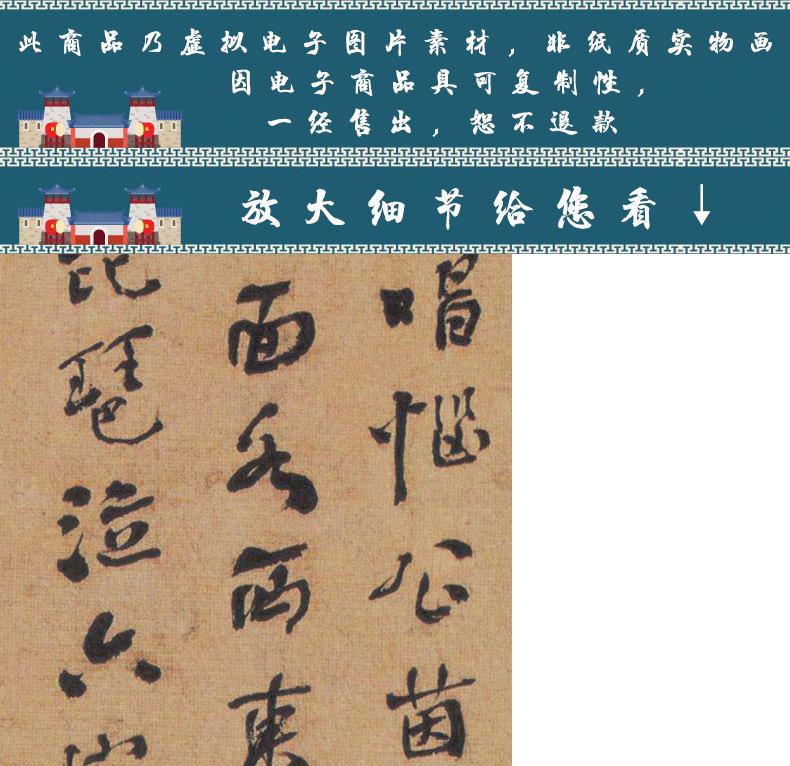 此商品乃虚拟电子图片素材，非纸质实物画
因电子商品具可复制性，
一经售出，恕不退款
放大细节给您看
唱惱公茵
面西東
琵琶泣六